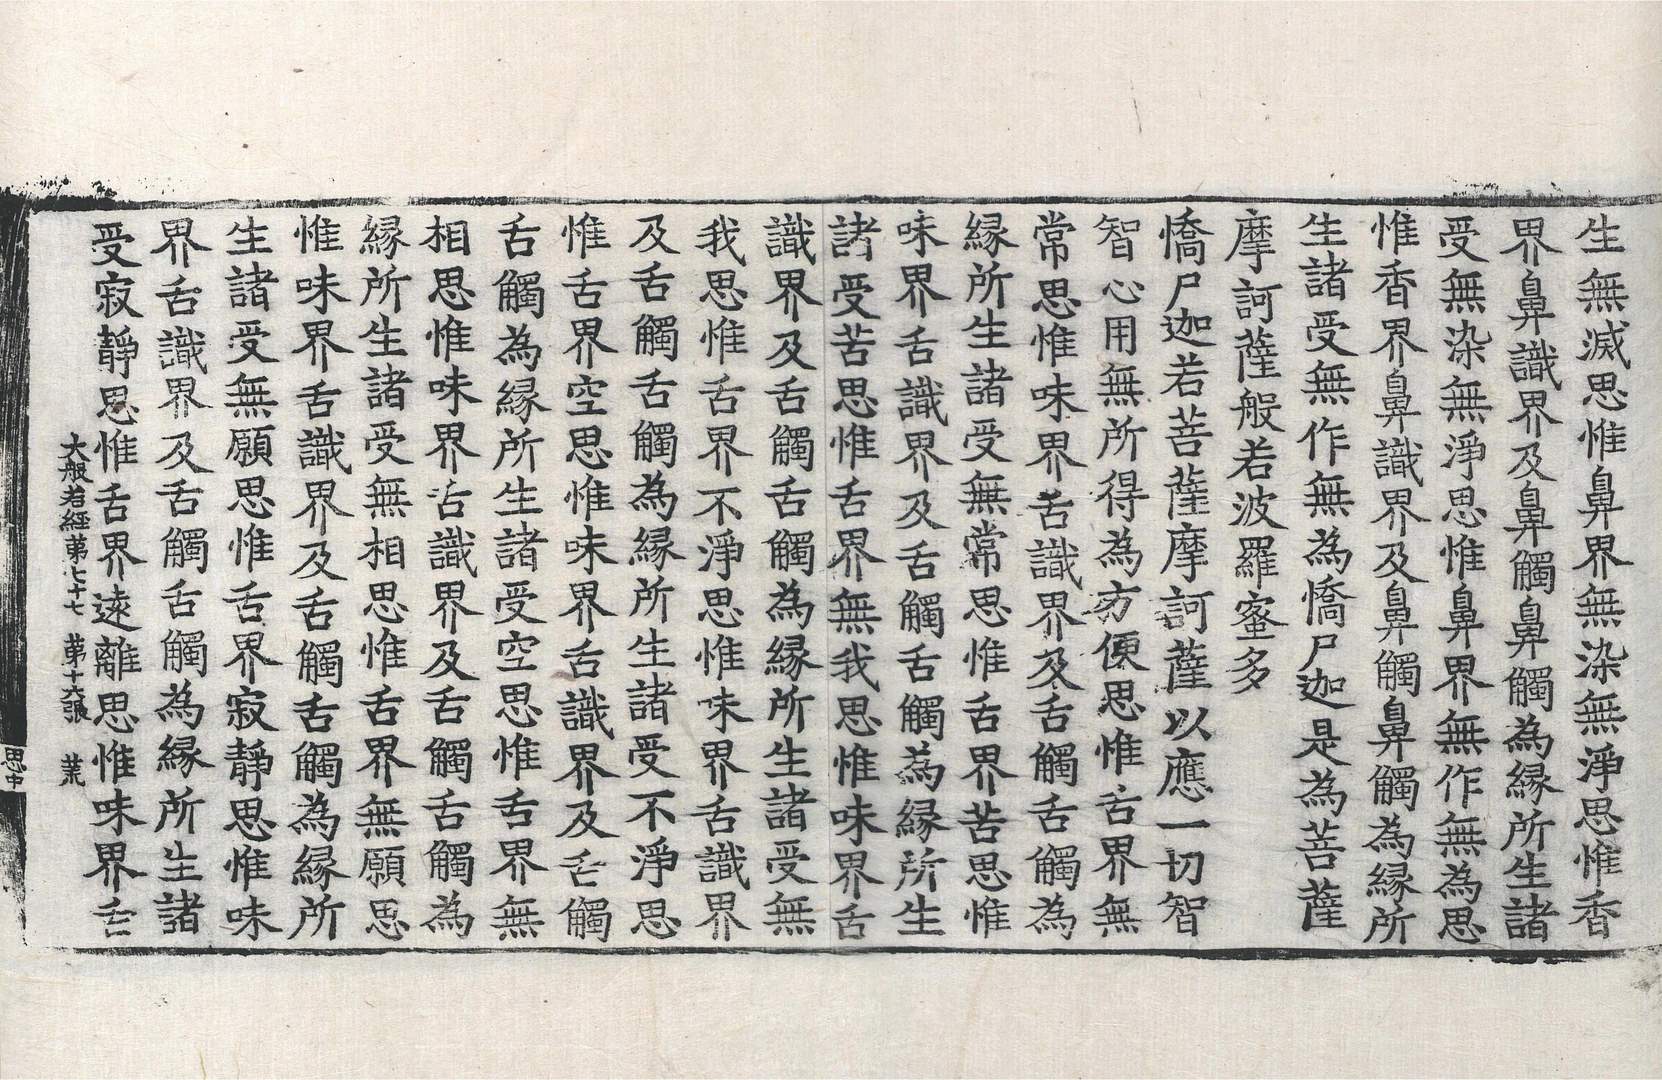 生無滅思惟鼻界無染無淨思惟香
界鼻識界及鼻觸鼻觸為縁所生諸
受無染無淨思惟鼻界無作無為思
惟香界鼻識界及鼻觸鼻觸為縁所
生諸受無作無為憍尸迦是為菩薩
摩訶薩般若波羅蜜多
憍尸迦若菩薩摩訶薩以應一切智
智心用無所得為方便思惟舌界無
常思惟味界舌識界及舌觸舌觸為
縁所生諸受無常思惟舌界苦思惟
味界舌識界及舌觸舌觸為縁所生
諸受苦思惟舌界無我思惟味界舌
識界及舌觸舌觸為縁所生諸受無
我思惟舌界不淨思惟味界舌識界
及舌觸舌觸為縁所生諸受不淨思
惟舌界空思惟味界舌識界及舌觸
舌觸為縁所生諸受空思惟舌界無
相思惟味界舌識界及舌觸舌觸為
縁所生諸受無相思惟舌界無願思
惟味界舌識界及舌觸舌觸為縁所
生諸受無願思惟舌界寂靜思惟味
界舌識界及舌觸舌觸為縁所生諸
受寂靜思惟舌界遠離思惟味界舌
大般若經第七十七 第十六張 菜